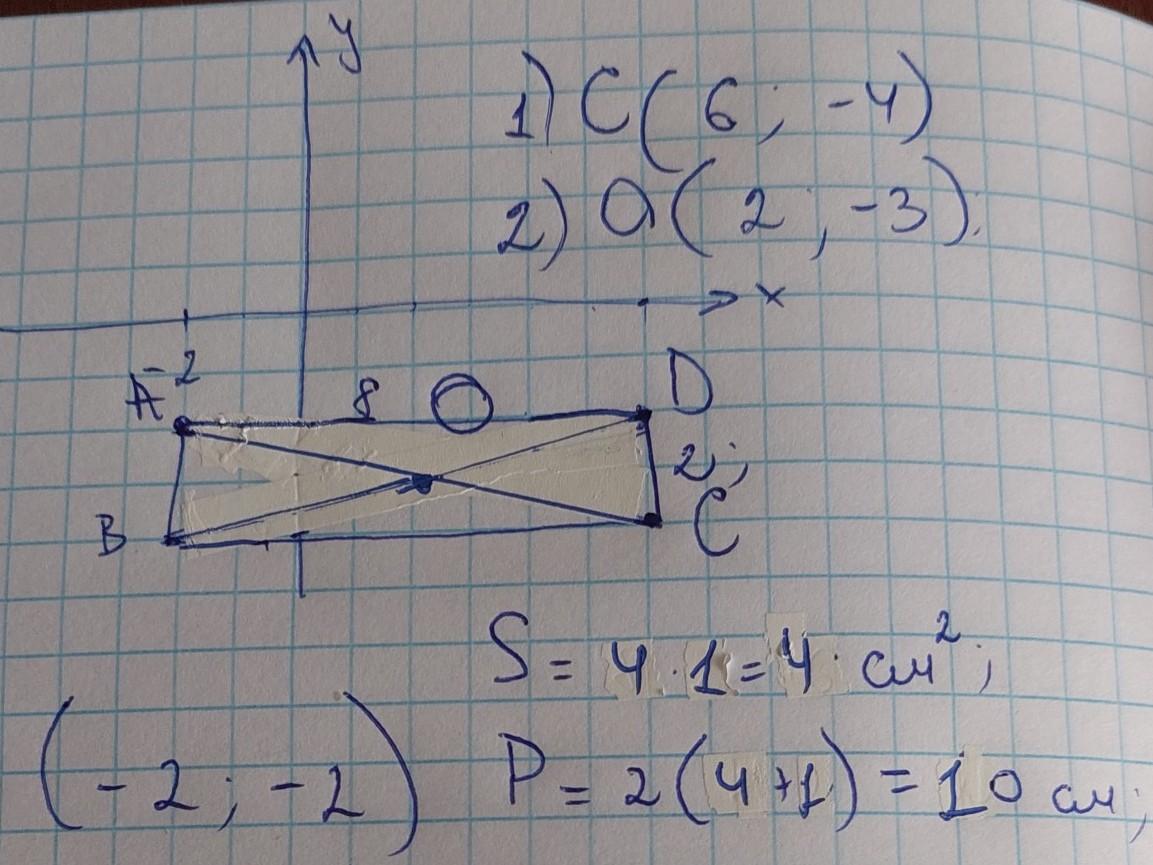 y
1) C(6; -4)
2) O(2; -3);
x
-2
A 8 O D
2;
B C
S = 4 · 1 = 4 см²;
(-2; -2) P = 2(4+1) = 10 см;